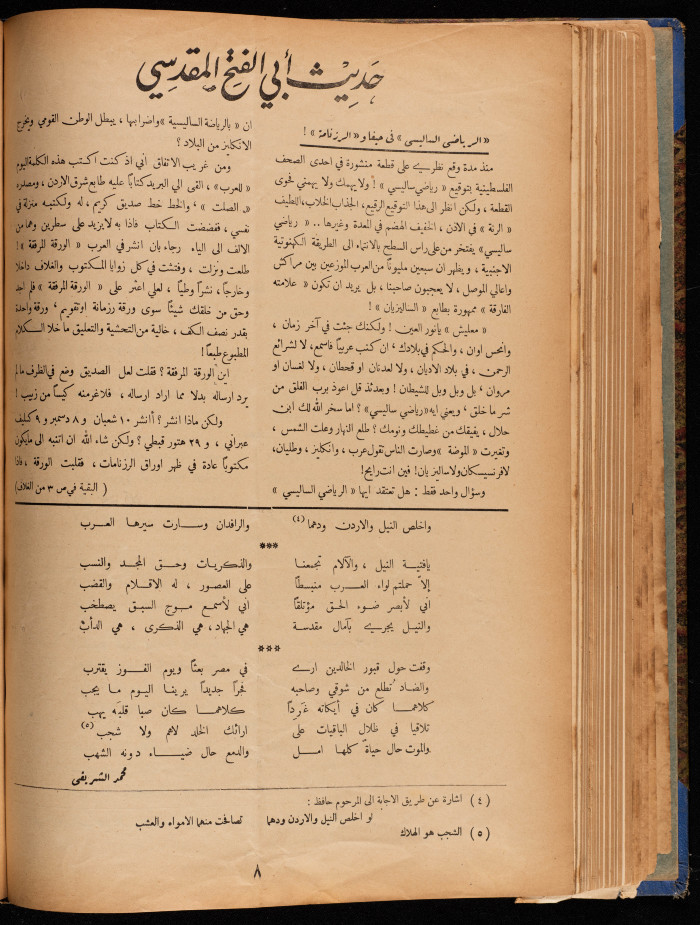 حديث أبي الفتح المقدسي
« الرياضي الساليسي » في حيفا و « الرزنامة » !
منذ مدة وقع نظري على قطعة منشورة في احدى الصحف
الفلسطينية بتوقيع « رياضي ساليسي » ! ولا يهمك ولا يهمني فحوى
القطعة ، ولكن انظر الى هذا التوقيع الرقيع ، الجذاب الخلاب ، اللطيف
« الرنة » في الاذن ، الخفيف الهضم في المعدة وغيرها .. « رياضي
ساليسي » يفتخر من على راس السطح بالانتماء الى الطريقة الكهنوتية
الاجنبية ، ويظهر ان سبعين مليوناً من العرب الموزعين بين مراكش
واعالي الموصل ، لا يعجبون صاحبنا ، بل يريد ان تكون « علامته
الفارقة » ممهورة بطابع « الساليزيان » !
« معليش » يانور العين ! ولكنك جئت في آخر زمان ،
وانحس اوان ، والحكم في بلادك ، ان كنت عربياً فاسمع ، لا لشرائع
الرحمن ، في بلاد الاديان ، ولا لعدنان او قحطان ، ولا لغسان او
مروان ، بل وبل وبل للشيطان ! وبعدئذ قل اعوذ برب الفلق من
شر ما خلق ، ويعني ايه « رياضي ساليسي » ؟ اما سخر الله لك ابن
حلال ، يفيقك من غطيطك ونومك ؟ طلع النهار وعلت الشمس ،
وتغيرت « الموضة » وصارت الناس تقول عرب ، وانكليز ، وطليان ،
لا فرنسيسكان ولا ساليزيان ! فين انت رايح !
وسؤال واحد فقط : هل تعتقد ايها « الرياضي الساليسي »
ان « بالرياضة الساليسية » واضرابها ، يبطل الوطن القومي ويخرج
الانكليز من البلاد ؟
ومن غريب الاتفاق اني اذ كنت اكتب هذه الكلمة اليوم
« للعرب » ، القى الي البريد كتاباً عليه طابع شرق الاردن ، ومصدره
« الصلت » ، والخط خط صديق كريم ، له ولكتبه منزلة في
نفسي ، ففضضت الكتاب فاذا به لا يزيد على سطرين وهما من
الالف الى الياء رجاء بان انشر في العرب « الورقة المرفقة » !
طلعت ونزلت ، وفتشت في كل زوايا المكتوب والغلاف داخلا
وخارجا ، نشراً وطياً ، لعلي اعثر على « الورقة المرفقة » فلم اجد
وحق من خلقك شيئاً سوى ورقة رزنامة او تقويم ، ورقة واحدة
بقدر نصف الكف ، خالية من التحشية والتعليق ما خلا الكلام
المطبوع طبعاً !
اين الورقة المرفقة ؟ فقلت لعل الصديق وضع في الظرف ما لم
يرد ارساله بدلا مما اراد ارساله ، فلاغرمنه كيساً من زبيب !
ولكن ماذا انشر ؟ أأنشر ١٠ شعبان و ٨ دسمبر و ٩ كليف
عبراني ، و ٢٩ هتور قبطي ؟ ولكن شاء الله ان انتبه الى ما يكون
مكتوباً عادة في ظهر اوراق الرزنامات ، فقلبت الورقة ، فاذا
( البقية في ص ٣ من الغلاف )
واخلص النيل والاردن ودهما (٤) والرافدان وسارت سيرها العرب
***
يافتية النيل ، والآلام تجمعنا والذكريات وحق المجد والنسب
إلاّ حملتم لواء العرب منبسطاً على العصور ، له الاقلام والقضب
اني لأبصر ضوء الحق مؤتلقاً اني لأسمع موج السيق يصطخب
والنيل يجري بآمال مقدسة هي الجهاد ، هي الذكرى ، هي الدأب
***
وقفت حول قبور الخالدين ارى في مصر بعثاً ويوم الفوز يقترب
والضاد تُطلع من شوقي وصاحبه فجراً جديداً يرينا اليوم ما يجب
كلاهما كان في أيكاته غَرِداً كلاهما كان صبا قلبَه يهب
تلاقيا في ظلال الباقيات على ارائك الخلد لاهم ولا شجب (٥)
والموت حال حياةً كلها امل والدمع حال ضياء دونه الشهب
محمد الشريفي
(٤) اشارة عن طريق الاجابة الى المرحوم حافظ :
لو اخلص النيل والاردن ودهما تصافحت منهما الامواه والعشب
(٥) الشجب هو الهلاك
٨